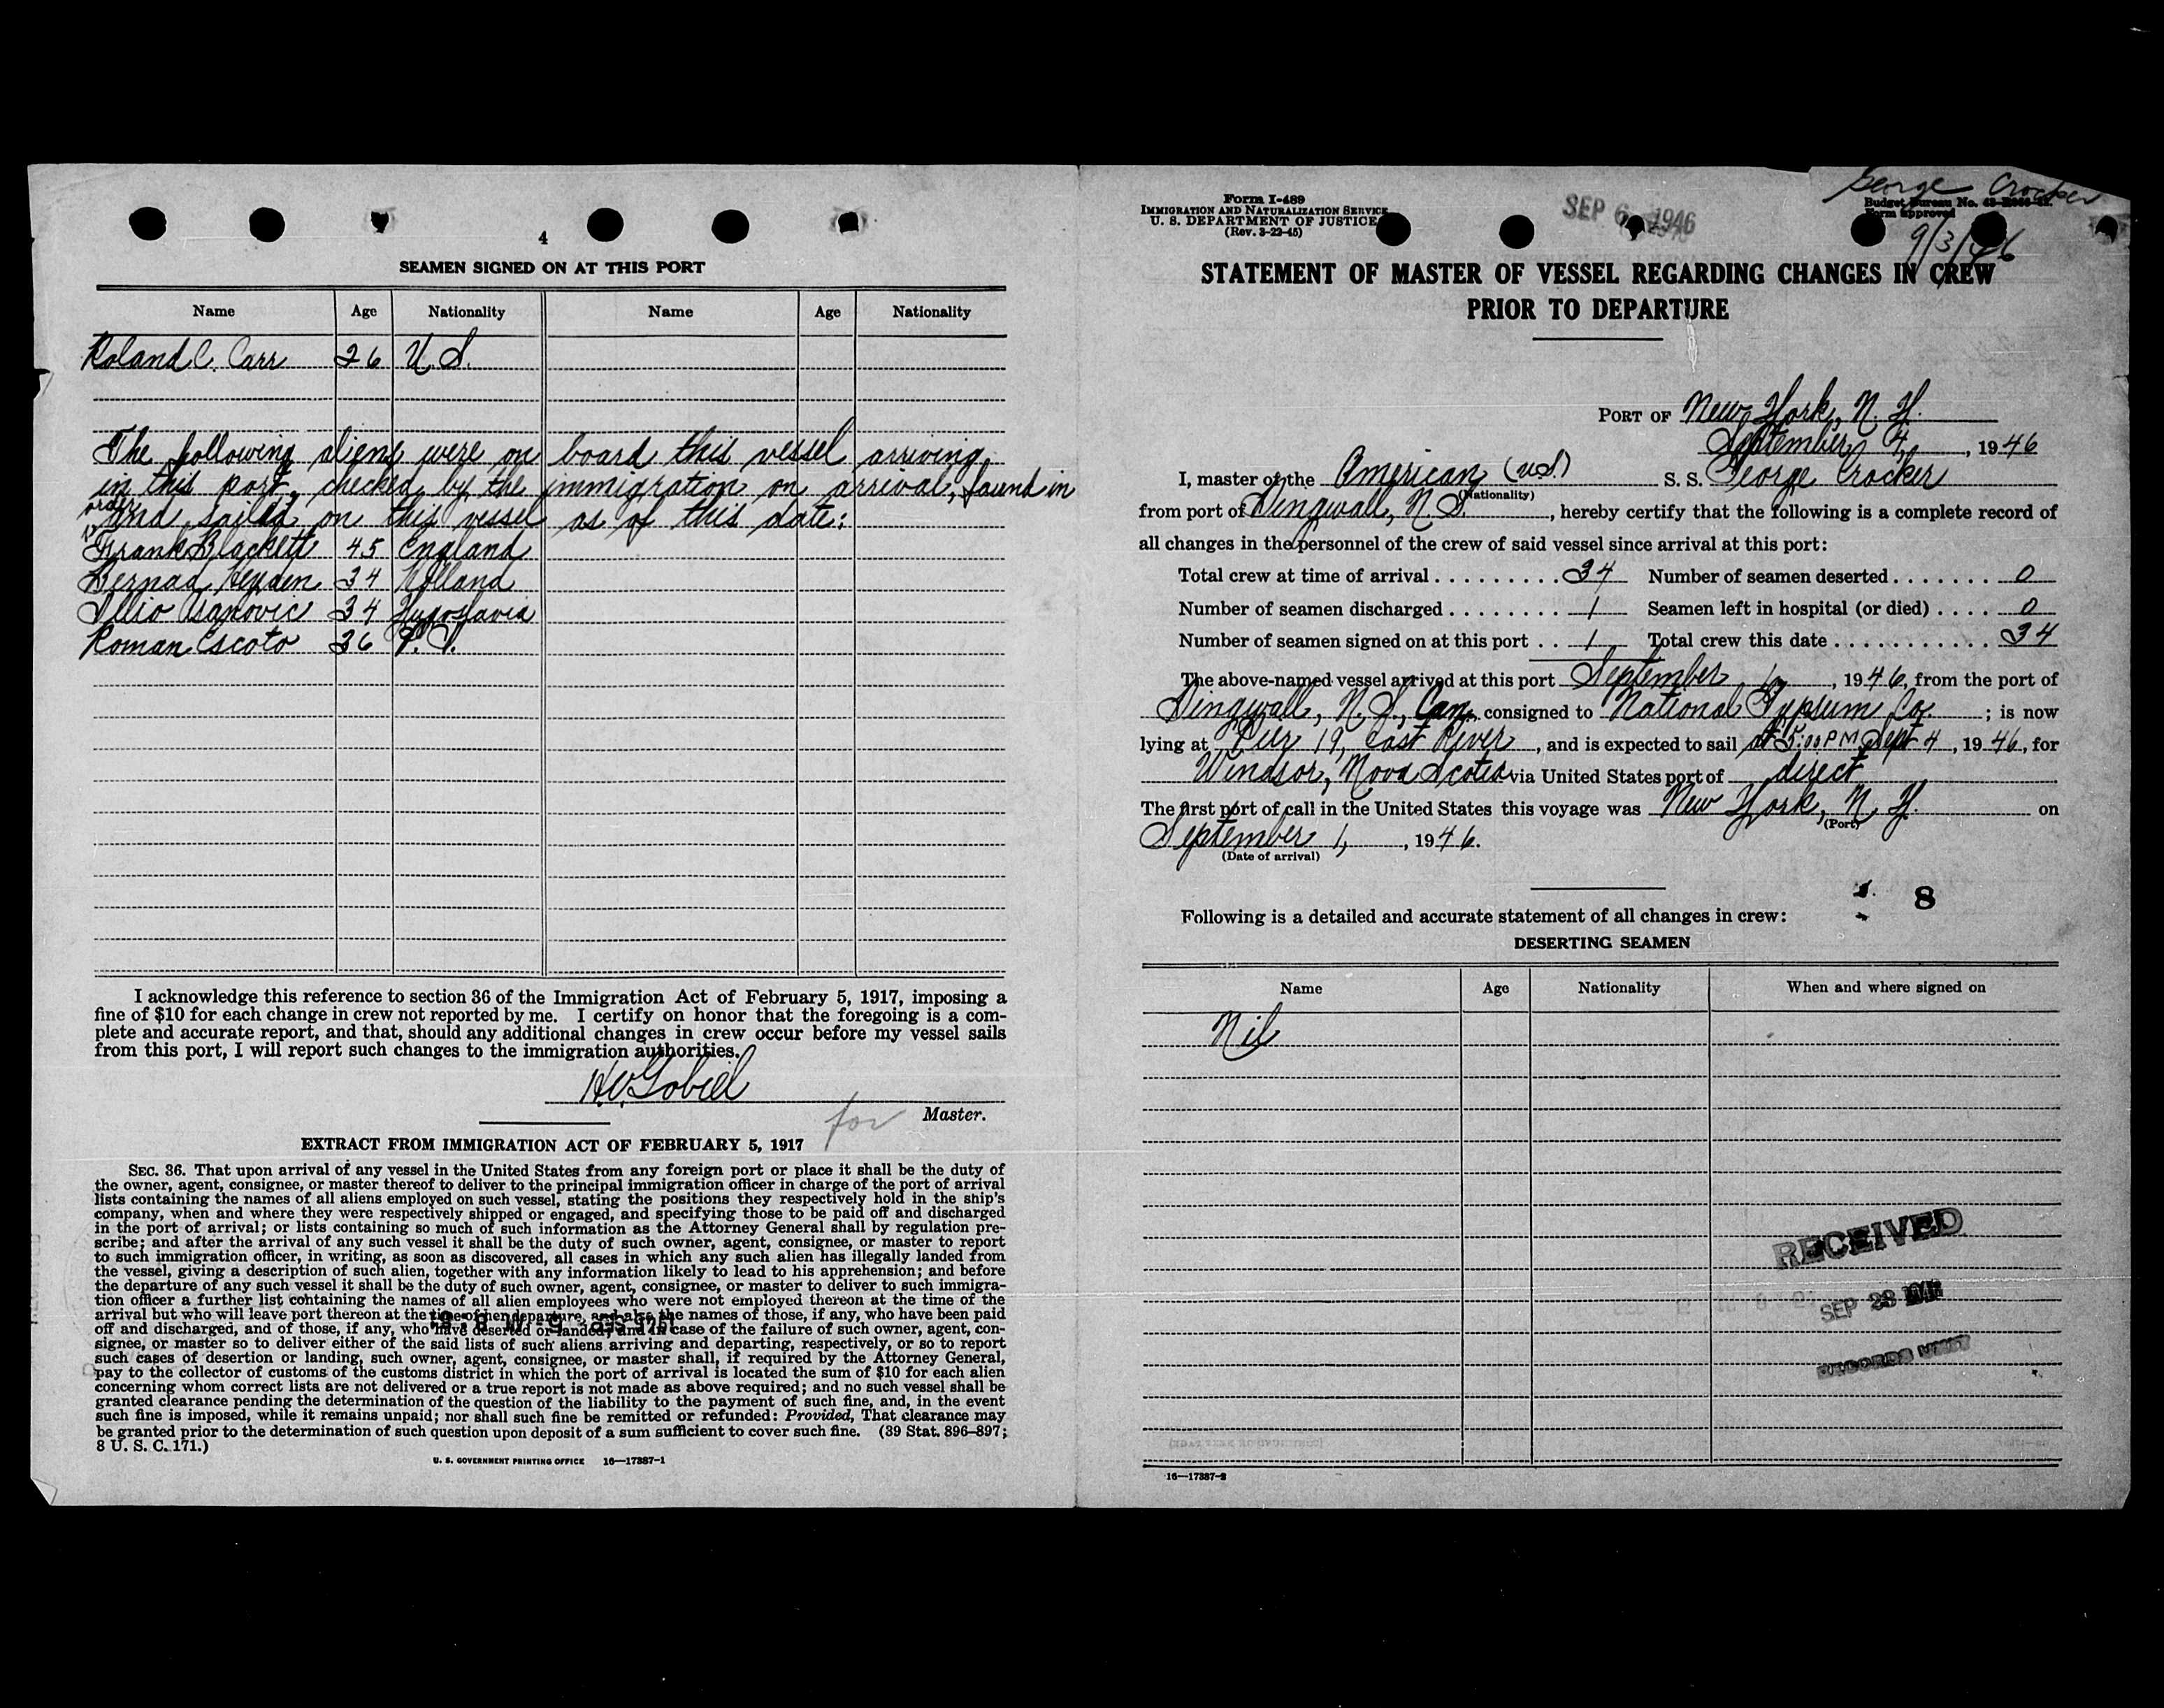 4
SEAMEN SIGNED ON AT THIS PORT
Name Age Nationality Name Age Nationality
Roland C. Carr 26 U.S.
The following aliens were on board this vessel arriving
in this port, checked by the immigration on arrival, found in
order
and sailed on this vessel as of this date:
Frank Blackett 45 England
Bernad Heyden 34 Holland
34 Yugoslavia
Roman Escoto 36 P.I.
I acknowledge this reference to section 36 of the Immigration Act of February 5, 1917, imposing a
fine of $10 for each change in crew not reported by me. I certify on honor that the foregoing is a com-
plete and accurate report, and that, should any additional changes in crew occur before my vessel sails
from this port, I will report such changes to the immigration authorities.
H.V. Gobiel
for Master.
EXTRACT FROM IMMIGRATION ACT OF FEBRUARY 5, 1917
SEC. 36. That upon arrival of any vessel in the United States from any foreign port or place it shall be the duty of
the owner, agent, consignee, or master thereof to deliver to the principal immigration officer in charge of the port of arrival
lists containing the names of all aliens employed on such vessel, stating the positions they respectively hold in the ship's
company, when and where they were respectively shipped or engaged, and specifying those to be paid off and discharged
in the port of arrival; or lists containing so much of such information as the Attorney General shall by regulation pre-
scribe; and after the arrival of any such vessel it shall be the duty of such owner, agent, consignee, or master to report
to such immigration officer, in writing, as soon as discovered, all cases in which any such alien has illegally landed from
the vessel, giving a description of such alien, together with any information likely to lead to his apprehension; and before
the departure of any such vessel it shall be the duty of such owner, agent, consignee, or master to deliver to such immigra-
tion officer a further list containing the names of all alien employees who were not employed thereon at the time of the
arrival but who will leave port thereon at the time of her departure, and also the names of those, if any, who have been paid
off and discharged, and of those, if any, who have deserted or landed; and in case of the failure of such owner, agent, con-
signee, or master so to deliver either of the said lists of such aliens arriving and departing, respectively, or so to report
such cases of desertion or landing, such owner, agent, consignee, or master shall, if required by the Attorney General,
pay to the collector of customs of the customs district in which the port of arrival is located the sum of $10 for each alien
concerning whom correct lists are not delivered or a true report is not made as above required; and no such vessel shall be
granted clearance pending the determination of the question of the liability to the payment of such fine, and, in the event
such fine is imposed, while it remains unpaid; nor shall such fine be remitted or refunded: Provided, That clearance may
be granted prior to the determination of such question upon deposit of a sum sufficient to cover such fine. (39 Stat. 896–897;
8 U. S. C. 171.)
U. S. GOVERNMENT PRINTING OFFICE 16—17387-1
Form I-489
IMMIGRATION AND NATURALIZATION SERVICE
U. S. DEPARTMENT OF JUSTICE
(Rev. 3-22-45)
SEP 6 1946
George Crocker
Budget Bureau No.
Form approved
9/3/46
STATEMENT OF MASTER OF VESSEL REGARDING CHANGES IN CREW
PRIOR TO DEPARTURE
PORT OF New York, N. Y.
September 4, , 1946
I, master of the American (U.S.) S. S. George Crocker
(Nationality)
from port of Dingwall, N.S. , hereby certify that the following is a complete record of
all changes in the personnel of the crew of said vessel since arrival at this port:
Total crew at time of arrival 34 Number of seamen deserted 0
Number of seamen discharged 1 Seamen left in hospital (or died) 0
Number of seamen signed on at this port 1 Total crew this date 34
The above-named vessel arrived at this port September 1, , 1946, from the port of
Dingwall, N.S., Can. consigned to National Gypsum Co. ; is now
lying at Pier 19, East River , and is expected to sail at 5:00 PM Sept 4 , 1946, for
Windsor, Nova Scotia via United States port of direct
The first port of call in the United States this voyage was New York, N. Y. on
(Port)
September 1, , 1946.
(Date of arrival)
8
Following is a detailed and accurate statement of all changes in crew:
DESERTING SEAMEN
Name Age Nationality When and where signed on
Nil
RECEIVED
SEP 23
RECORDS UNIT
16—17387-2